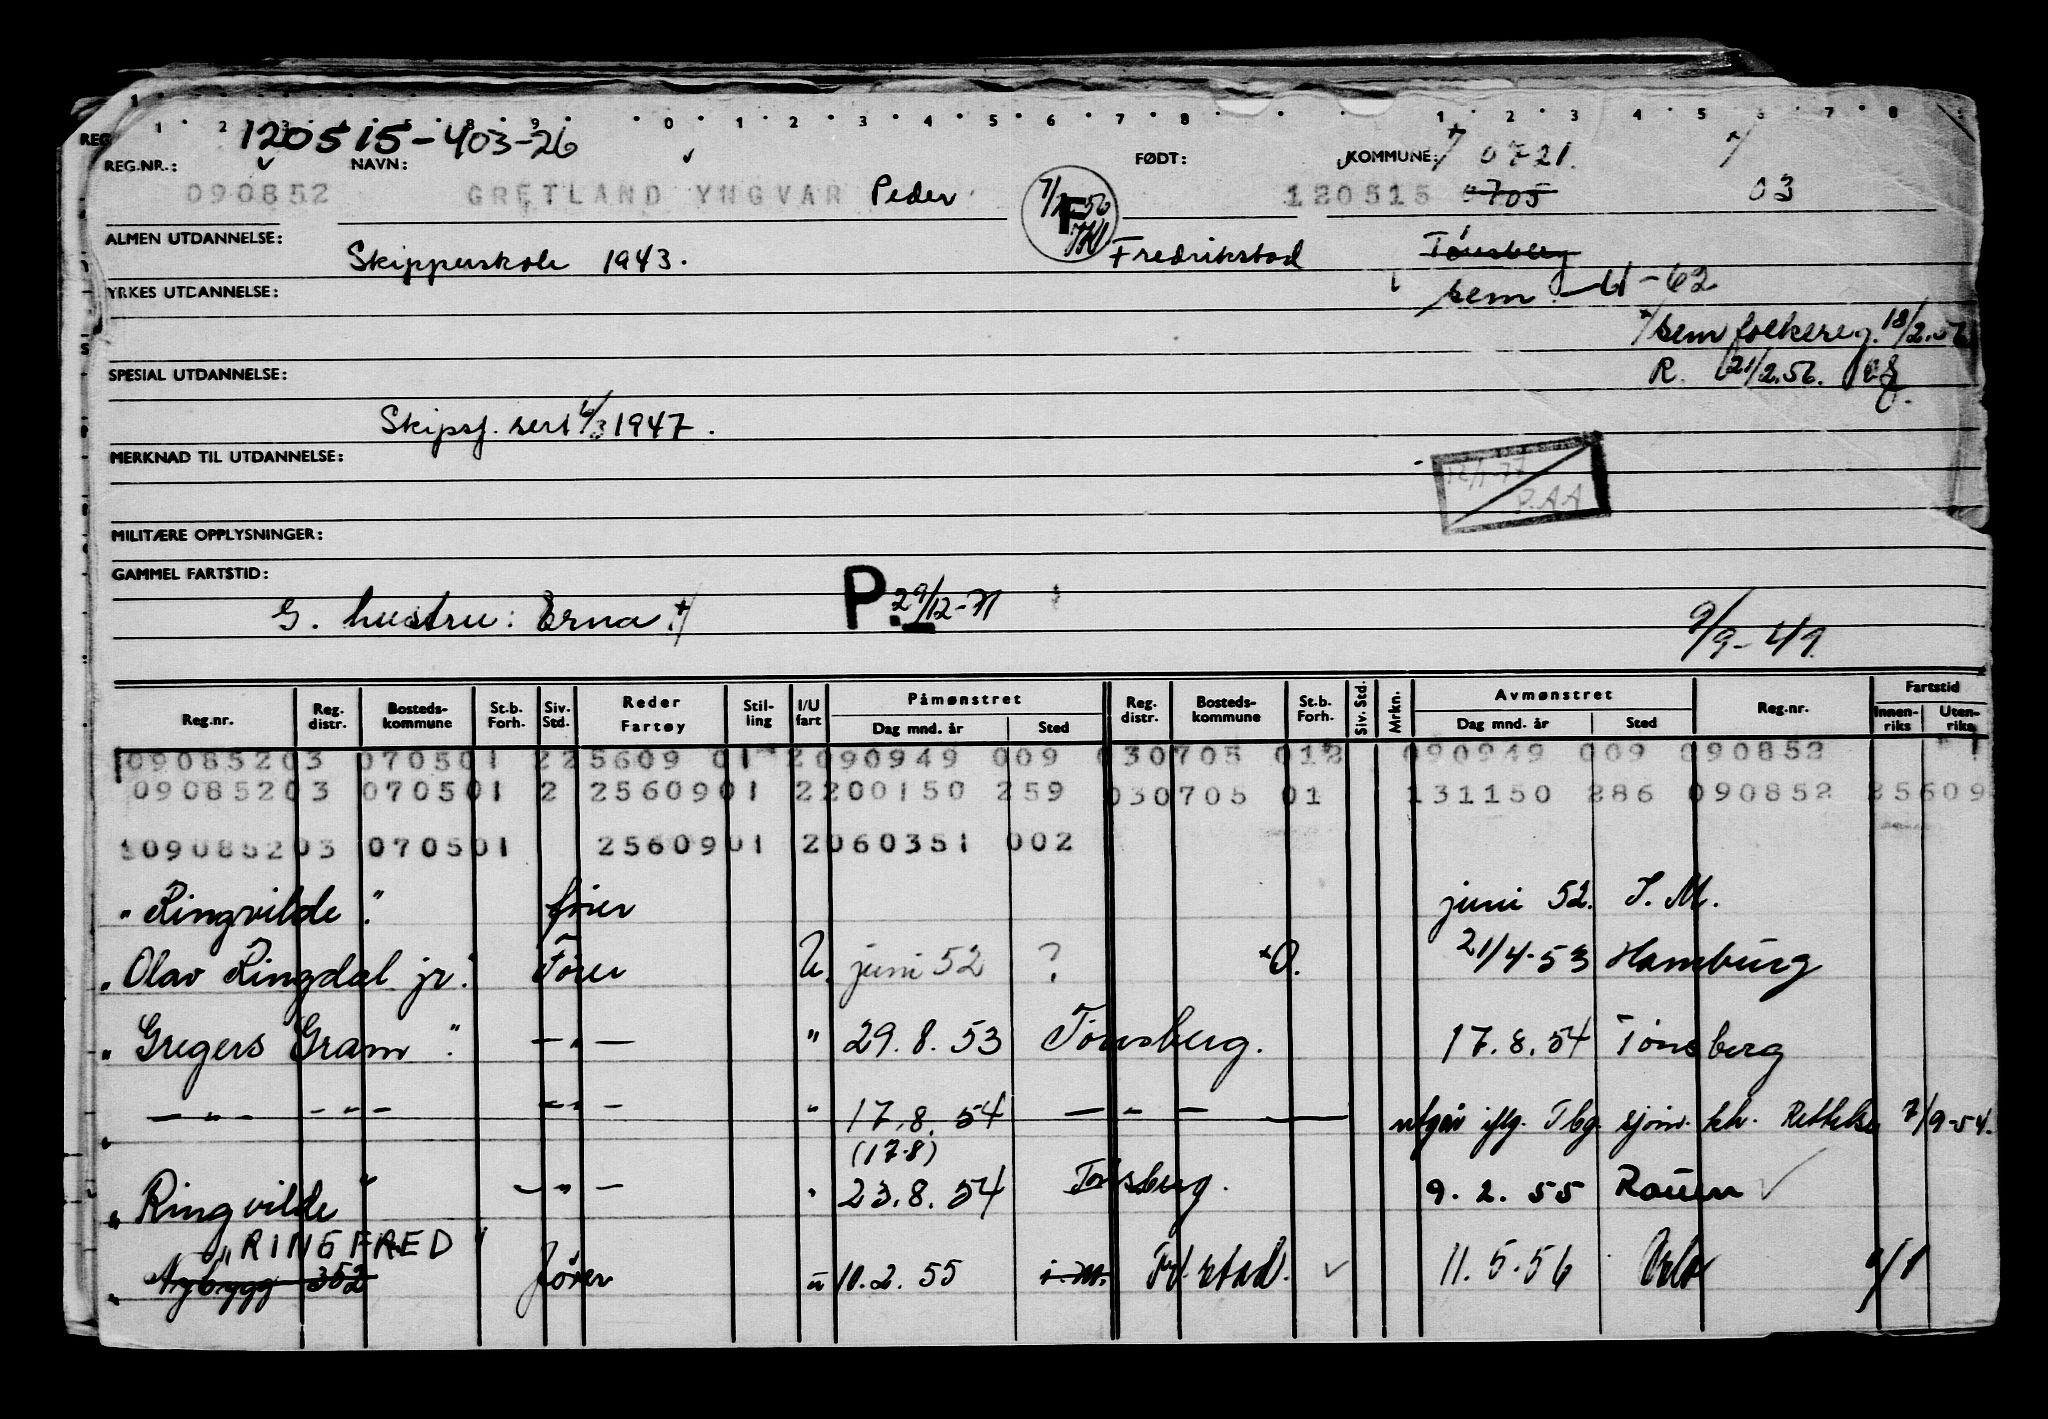 120515-403-26
REG.NR.: NAVN: FØDT: KOMMUNE: 0721.
090852 GRETLAND YNGVAR Peder 120515 0705 03
ALMEN UTDANNELSE: Skipperskole 1943. Fredrikstad Tönsberg
YRKES UTDANNELSE: Sem -62
Sem folkereg. 18/2.56
SPESIAL UTDANNELSE: R. 21/2.56.
Skipsf. sert 6/3 1947.
MERKNAD TIL UTDANNELSE:
P.A.A
MILITÆRE OPPLYSNINGER:
GAMMEL FARTSTID:
G. hustru: Erna P. 29/12-71
9/9-49.
Reg.nr. Reg. distr. Bosteds-kommune St.b. Forh. Siv. Std. Reder Fartøy Stil-ling I/U fart Påmønstret Dag mnd. år Sted Reg. distr. Bosteds-kommune St.b. Forh. Siv. Std. Mrkn. Avmønstret Dag mnd. år Sted Reg.nr. Fartstid Innen-riks Uten-riks
09085203 070501 225609 01 2090949 009 030705 012 090949 009 090852
09085203 070501 2 2560901 2200150 259 030705 01 131150 286 090852 25609
09085203 070501 2560901 2060351 002
"Ringvilde" fører juni 52. I.M.
"Olav Ringdal jr." Fører U. juni 52 ? O. 21/4-53 Hamburg
"Gregers Gram" — " — " 29.8.53 Tönsberg. 17.8.54 Tönsberg
— " — — " — — " — " 17.8.54 — " — utgår iflg. Tbg. sjøm. ktr. Rettelse 7/9-54.
(17.8)
"Ringvilde" — " — " 23.8.54 Tönsberg. 9.2.55 Rouen
"RINGFRED"
"Nybygg 352 fører u 10.2.55 i.m. Fr.stad. 11.5.56 Oslo